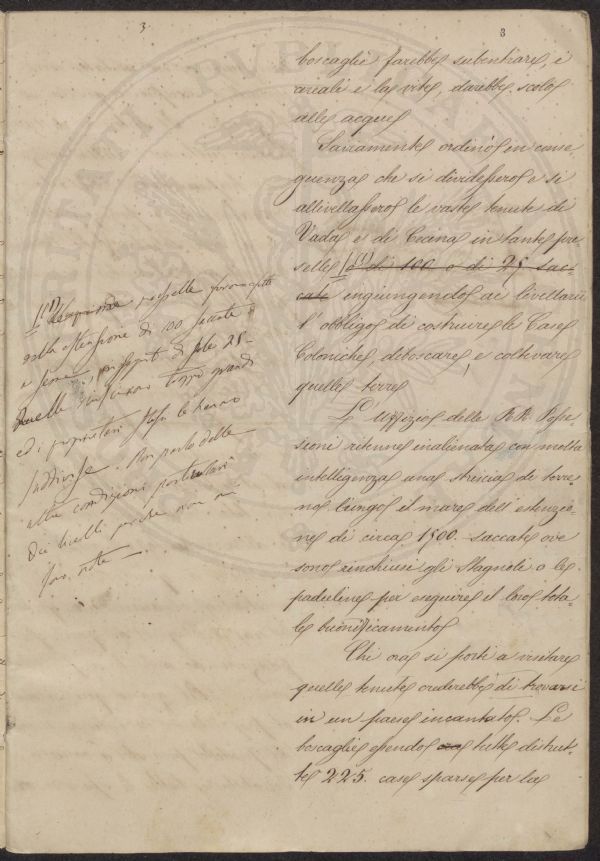 3
8
boscaglie farebbe subentrare, i
cereali e la vite, darebbe scolo
alle acque
Saviamente ordinò in conse-
guenza che si dividessero e si
allivellassero le vaste tenute di
Vada e di Cecina in tante pre-
selle (1) o di 100 o di 25 sac-
cate ingiungendo ai livellarii
l'obbligo di costruire le Case
Coloniche, diboscare, e coltivare
quelle terre
L'Uffizio delle RR. Posses-
sioni ritenne inalienata con molta
intelligenza una striscia di terre-
no lungo il mare dell'estenzio-
ne di circa 1500 saccate ove
sono rinchiusi gli Stagnoli o le
paduline per eseguire il loro tota-
le buonificamento
Chi ora si porti a visitare
quelle tenute crederebbe di trovarsi
in un paese incantato. Le
boscaglie essendo tutte distrut-
te, 225. case sparse per la
(1) preselle furono
nella estensione di 100 saccate
e di sole 25 -
Quelle troppo grandi
ed i proprietari stessi le hanno
suddivise. Non parlo delle
altre condizioni particolari
dei livelli perchè non mi
sono note